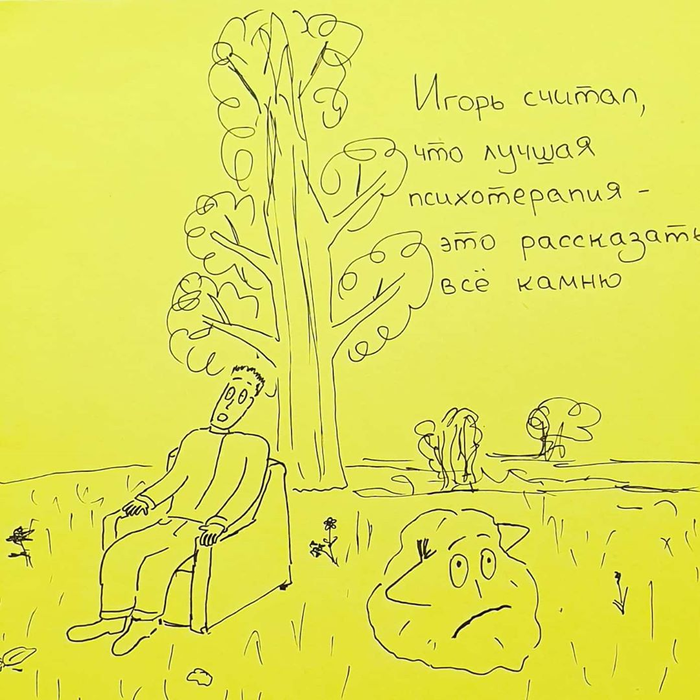 Игорь считал,
что лучшая
психотерапия -
это рассказать
всё камню